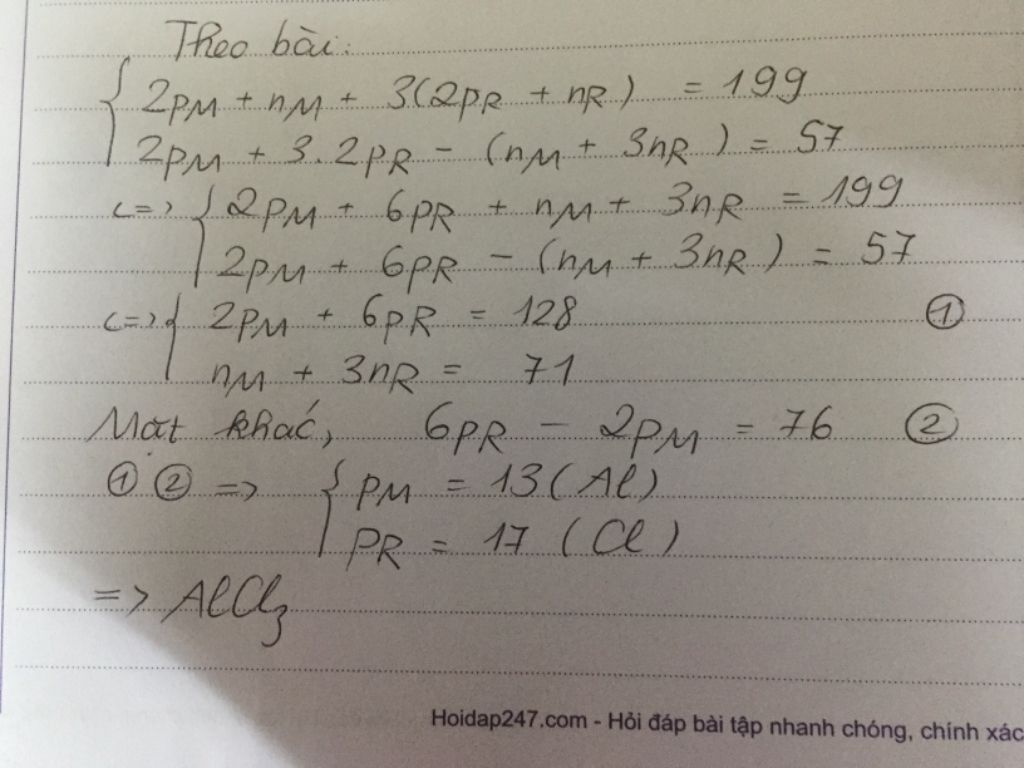 Theo bài:
{ 2pM + nM + 3(2pR + nR) = 199
2pM + 3.2pR - (nM + 3nR) = 57
<=> { 2pM + 6pR + nM + 3nR = 199
2pM + 6pR - (nM + 3nR) = 57
<=> { 2pM + 6pR = 128 ①
nM + 3nR = 71
Mặt khác, 6pR - 2pM = 76 ②
① ② => { pM = 13 (Al)
pR = 17 (Cl)
=> AlCl₃
Hoidap247.com - Hỏi đáp bài tập nhanh chóng, chính xác